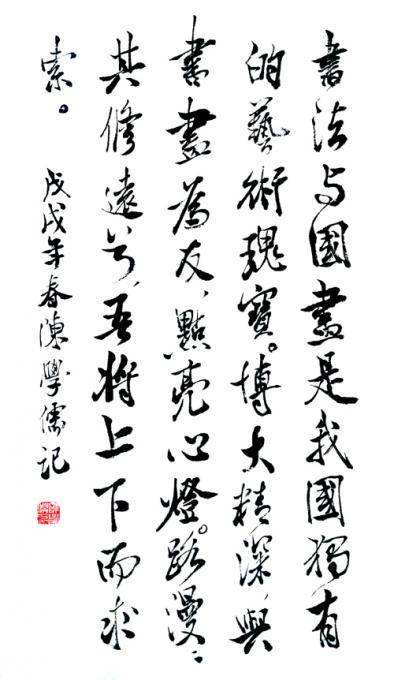 書法与國畫是我國獨有
的藝術瑰寶。博大精深、與
書畫為友、點亮心燈。路漫〻
其修遠兮、吾將上下而求
索。
戊戌年春陳學儒記